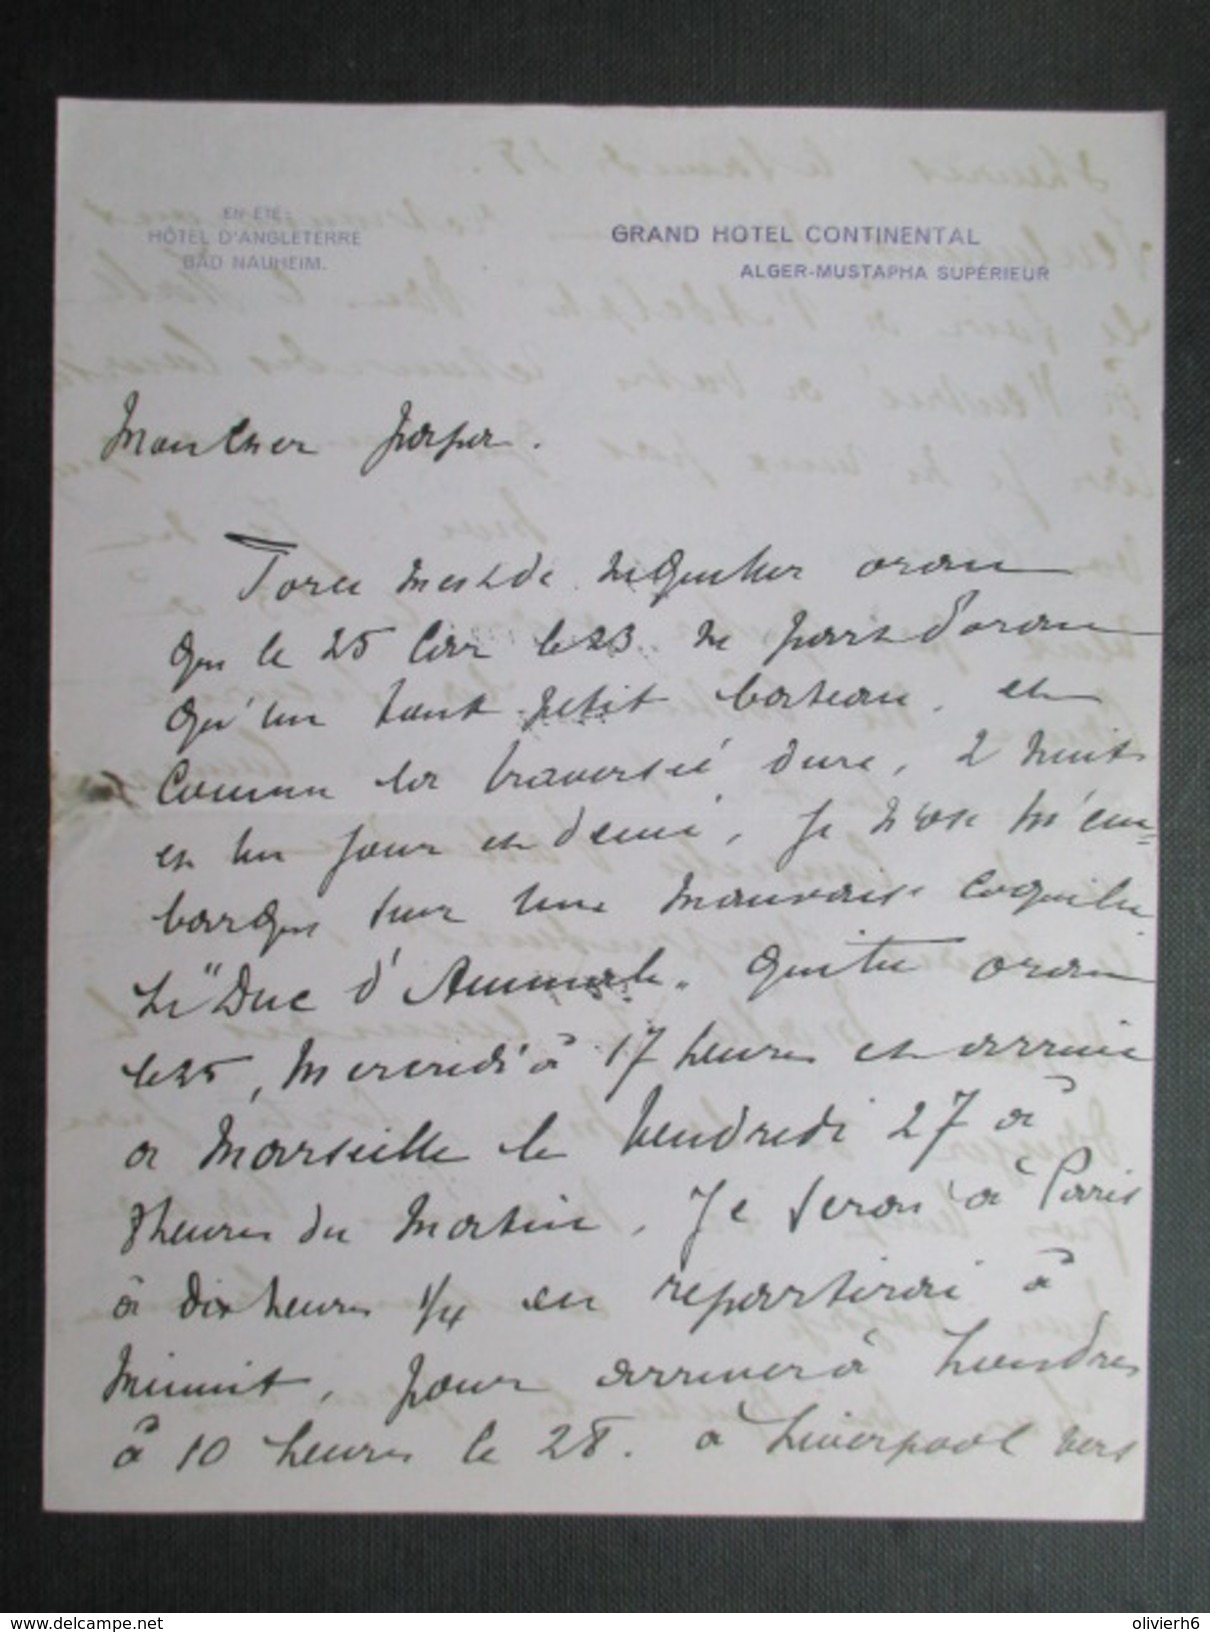 EN ÉTÉ:
HÔTEL D'ANGLETERRE
BAD NAUHEIM.
GRAND HOTEL CONTINENTAL
ALGER-MUSTAPHA SUPÉRIEUR
Mon cher papa.
Force m'est de ne quitter oran
que le 25 car le 23 ne part d'oran
qu'un tout petit bateau, et
comme la traversée dure, 2 nuits
et un jour et demi, je n'ose m'em=
barquer sur une mauvaise coquille
Le "Duc d'Aumale" quitte oran
le 25, Mercredi à 17 heures et arrive
a Marseille le Vendredi 27 à
8 heures du Matin. Je serai à Paris
à dix heures 1/4 en repartirai à
minuit, pour arriver à Londres
à 10 heures le 28. a Liverpool vers
www.delcampe.net
olivierh6